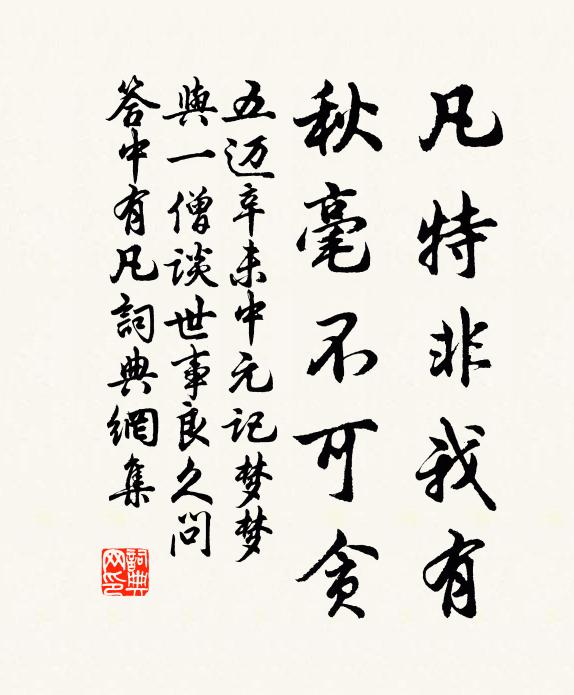 凡特非我有
秋毫不可貪
五迈辛未中元记梦梦
與一僧談世事良久問
答中有凡詞典網集
詞典
网印